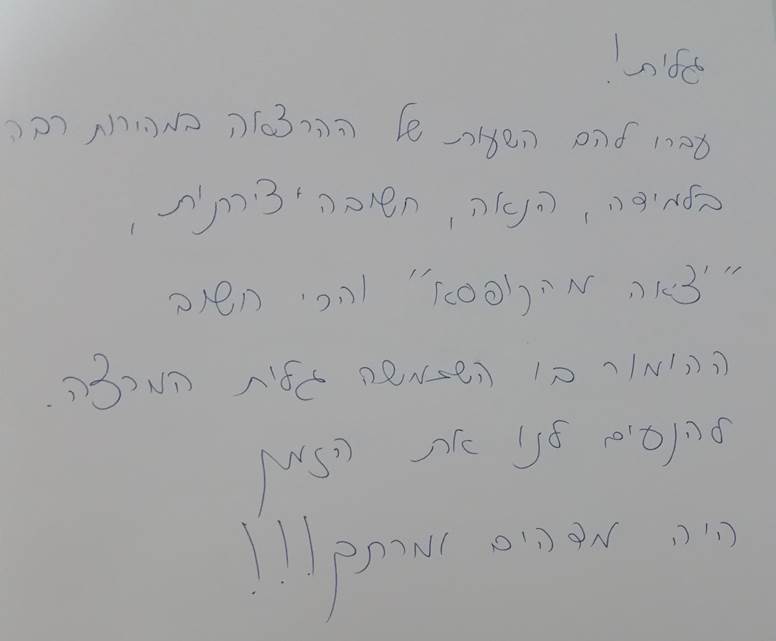 גלית!
עברו להם השעות של ההרצאה במהירות רבה
בלמידה, הנאה, חשיבה יצירתית,
"יצאה מהקופסא" והכי חשוב
ההומור בו השתמשה גלית המרצה.
להנעים לנו את הזמן
היה מדהים ומרתק!!!